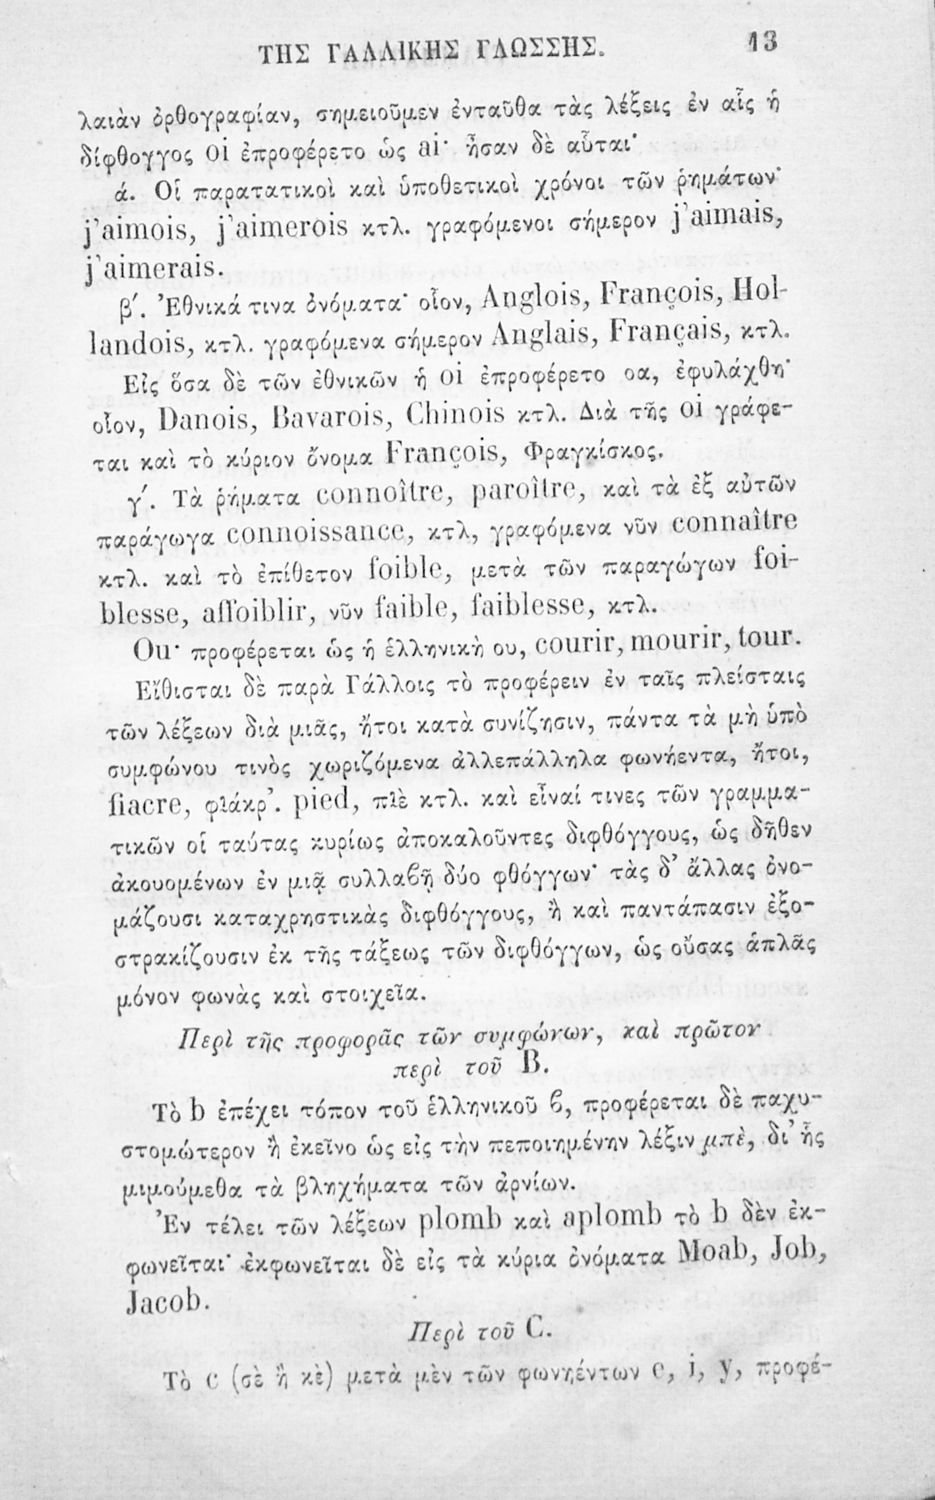 ΤΗΣ ΓΑΛΛΙΚΗΣ ΓΛΩΣΣΗΣ. 13
λαιὰν ὀρθογραφίαν, σημειοῦμεν ἐνταῦθα τὰς λέξεις ἐν αἷς ἡ
δίφθογγος oi ἐπροφέρετο ὡς ai· ἦσαν δὲ αὗται·
ά. Οἱ παρατατικοὶ καὶ ὑποθετικοὶ χρόνοι τῶν ῥημάτων·
j'aimois, j'aimerois κτλ. γραφόμενοι σήμερον j'aimais,
j'aimerais.
β'. Ἐθνικά τινα ὀνόματα· οἷον, Anglois, François, Hol-
landois, κτλ. γραφόμενα σήμερον Anglais, Français, κτλ.
Εἰς ὅσα δὲ τῶν ἐθνικῶν ἡ oi ἐπροφέρετο οα, ἐφυλάχθη·
οἷον, Danois, Bavarois, Chinois κτλ. Διὰ τῆς oi γράφε-
ται καὶ τὸ κύριον ὄνομα François, Φραγκίσκος.
γ'. Τὰ ῥήματα connoître, paroître, καὶ τὰ ἐξ αὐτῶν
παράγωγα connoissance, κτλ, γραφόμενα νῦν connaître
κτλ. καὶ τὸ ἐπίθετον foible, μετὰ τῶν παραγώγων foi-
blesse, affoiblir, νῦν faible, faiblesse, κτλ.
Ou· προφέρεται ὡς ἡ ἑλληνικὴ ου, courir, mourir, tour.
Εἴθισται δὲ παρὰ Γάλλοις τὸ προφέρειν ἐν ταῖς πλείσταις
τῶν λέξεων διὰ μιᾶς, ἤτοι κατὰ συνίζησιν, πάντα τὰ μὴ ὑπὸ
συμφώνου τινὸς χωριζόμενα ἀλλεπάλληλα φωνήεντα, ἤτοι,
fiacre, φιάκρ'. pied, πιὲ κτλ. καὶ εἶναί τινες τῶν γραμμα-
τικῶν οἱ ταύτας κυρίως ἀποκαλοῦντες διφθόγγους, ὡς δῆθεν
ἀκουομένων ἐν μιᾷ συλλαϐῇ δύο φθόγγων· τὰς δ' ἄλλας ὀνο-
μάζουσι καταχρηστικὰς διφθόγγους, ἢ καὶ παντάπασιν ἐξο-
στρακίζουσιν ἐκ τῆς τάξεως τῶν διφθόγγων, ὡς οὔσας ἁπλᾶς
μόνον φωνὰς καὶ στοιχεῖα.
Περὶ τῆς προφορᾶς τῶν συμφώνων, καὶ πρῶτον
περὶ τοῦ B.
Τὸ b ἐπέχει τόπον τοῦ ἑλληνικοῦ ϐ, προφέρεται δὲ παχυ-
στομώτερον ἢ ἐκεῖνο ὡς εἰς τὴν πεποιημένην λέξιν μπὲ, δι' ἧς
μιμούμεθα τὰ βληχήματα τῶν ἀρνίων.
Ἐν τέλει τῶν λέξεων plomb καὶ aplomb τὸ b δὲν ἐκ-
φωνεῖται· ἐκφωνεῖται δὲ εἰς τὰ κύρια ὀνόματα Moab, Job,
Jacob.
Περὶ τοῦ C.
Τὸ c (σὲ ἢ κὲ) μετὰ μὲν τῶν φωνηέντων e, i, y, προφέ-